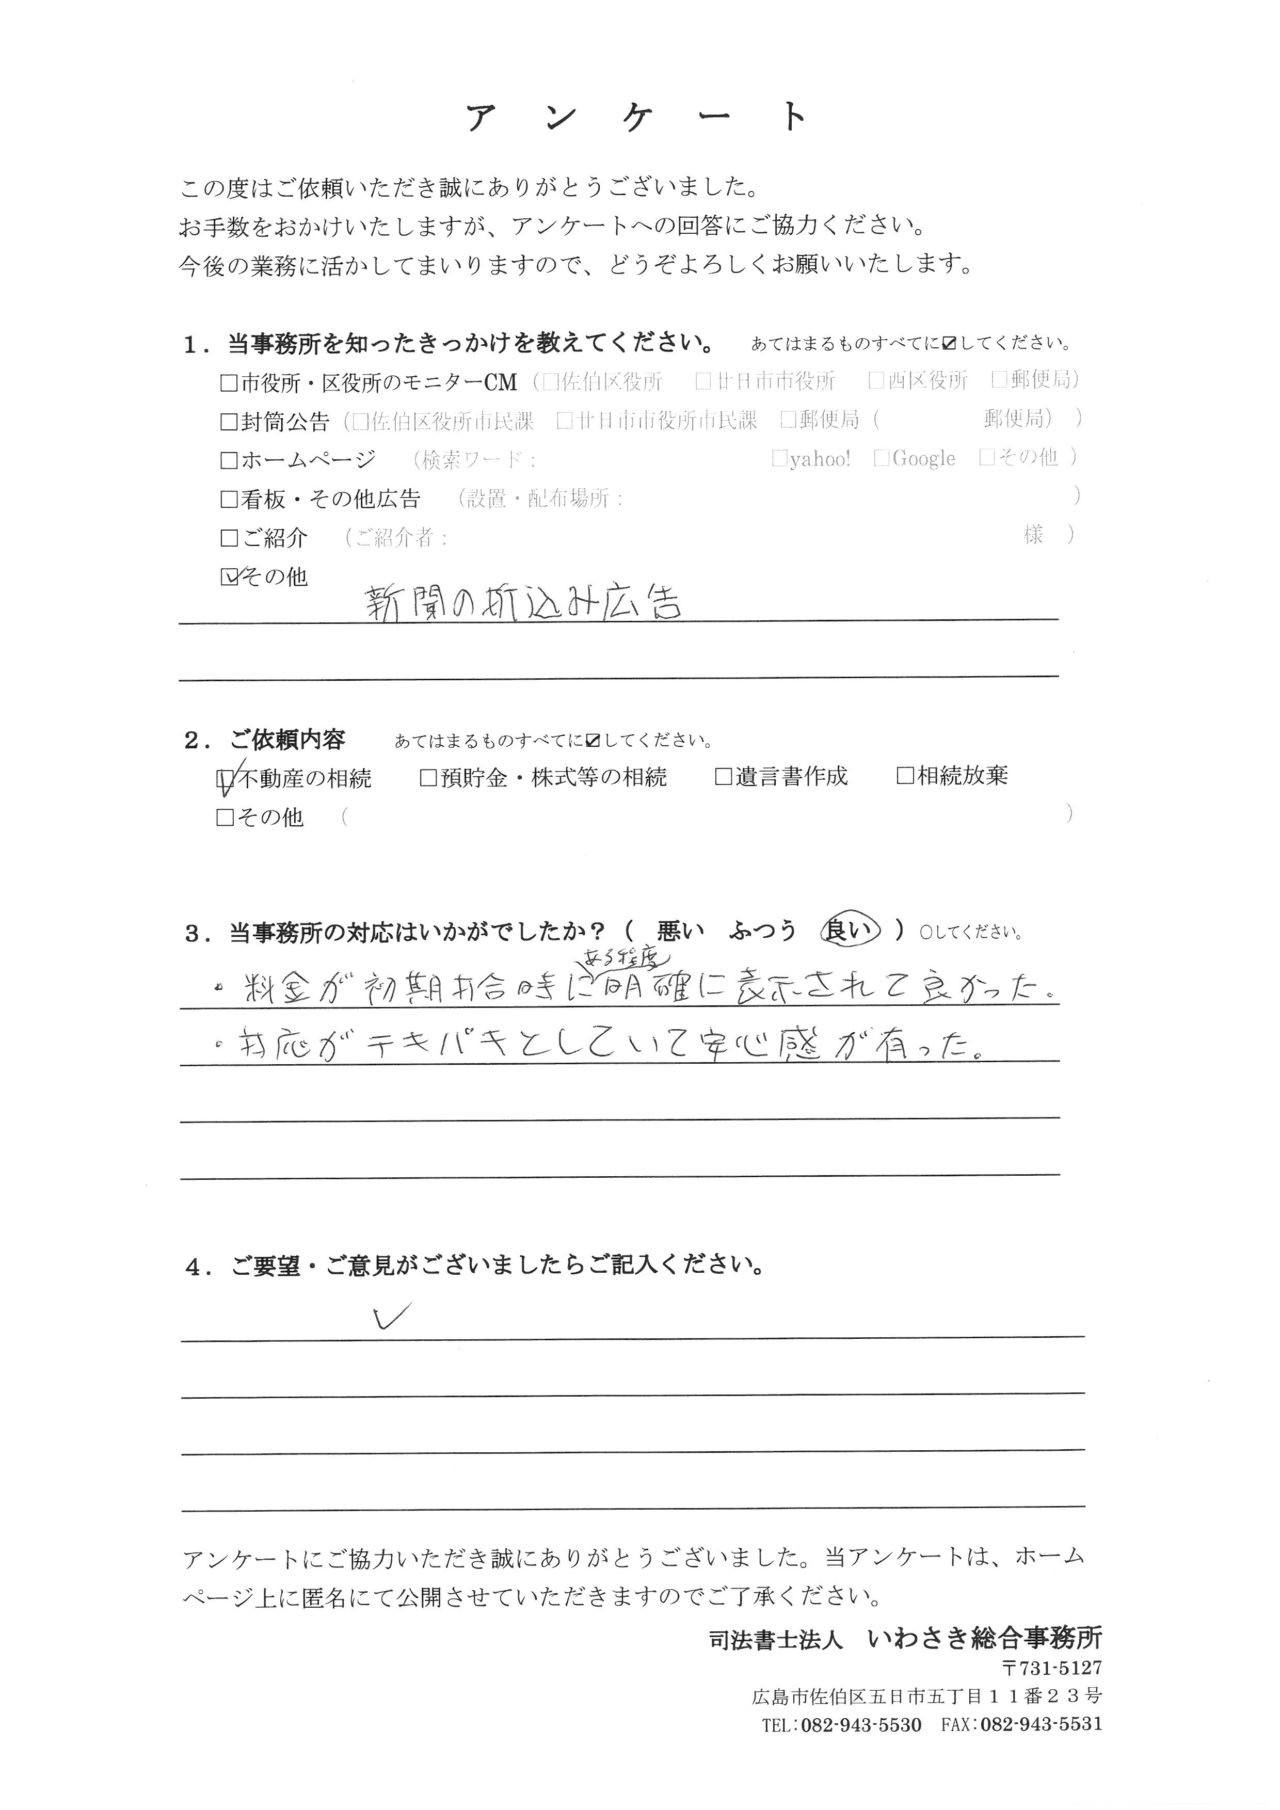 アンケート
この度はご依頼いただき誠にありがとうございました。
お手数をおかけいたしますが、アンケートへの回答にご協力ください。
今後の業務に活かしてまいりますので、どうぞよろしくお願いいたします。
1．当事務所を知ったきっかけを教えてください。　あてはまるものすべてに☑してください。
□市役所・区役所のモニターCM（□佐伯区役所　□廿日市市役所　□西区役所　□郵便局）
□封筒公告（□佐伯区役所市民課　□廿日市市役所市民課　□郵便局（　　　　郵便局））
□ホームページ　（検索ワード：　　　　　　　　　　□yahoo!　□Google　□その他 ）
□看板・その他広告　（設置・配布場所：　　　　　　　　　　　　　　　　　　）
□ご紹介　（ご紹介者：　　　　　　　　　　　　　　　　　　　　　　　様　）
☑その他
新聞の折込み広告
2．ご依頼内容　　あてはまるものすべてに☑してください。
☑不動産の相続　　□預貯金・株式等の相続　　□遺言書作成　　□相続放棄
□その他　（　　　　　　　　　　　　　　　　　　　　　　　　　　　　　　）
3．当事務所の対応はいかがでしたか？（　悪い　ふつう　良い　）○してください。
ある程度
・料金が初期打合時に明確に表示されて良かった。
・対応がテキパキとしていて安心感が有った。
4．ご要望・ご意見がございましたらご記入ください。
✓
アンケートにご協力いただき誠にありがとうございました。当アンケートは、ホーム
ページ上に匿名にて公開させていただきますのでご了承ください。
司法書士法人　いわさき総合事務所
〒731-5127
広島市佐伯区五日市五丁目１１番２３号
TEL：082-943-5530　FAX：082-943-5531